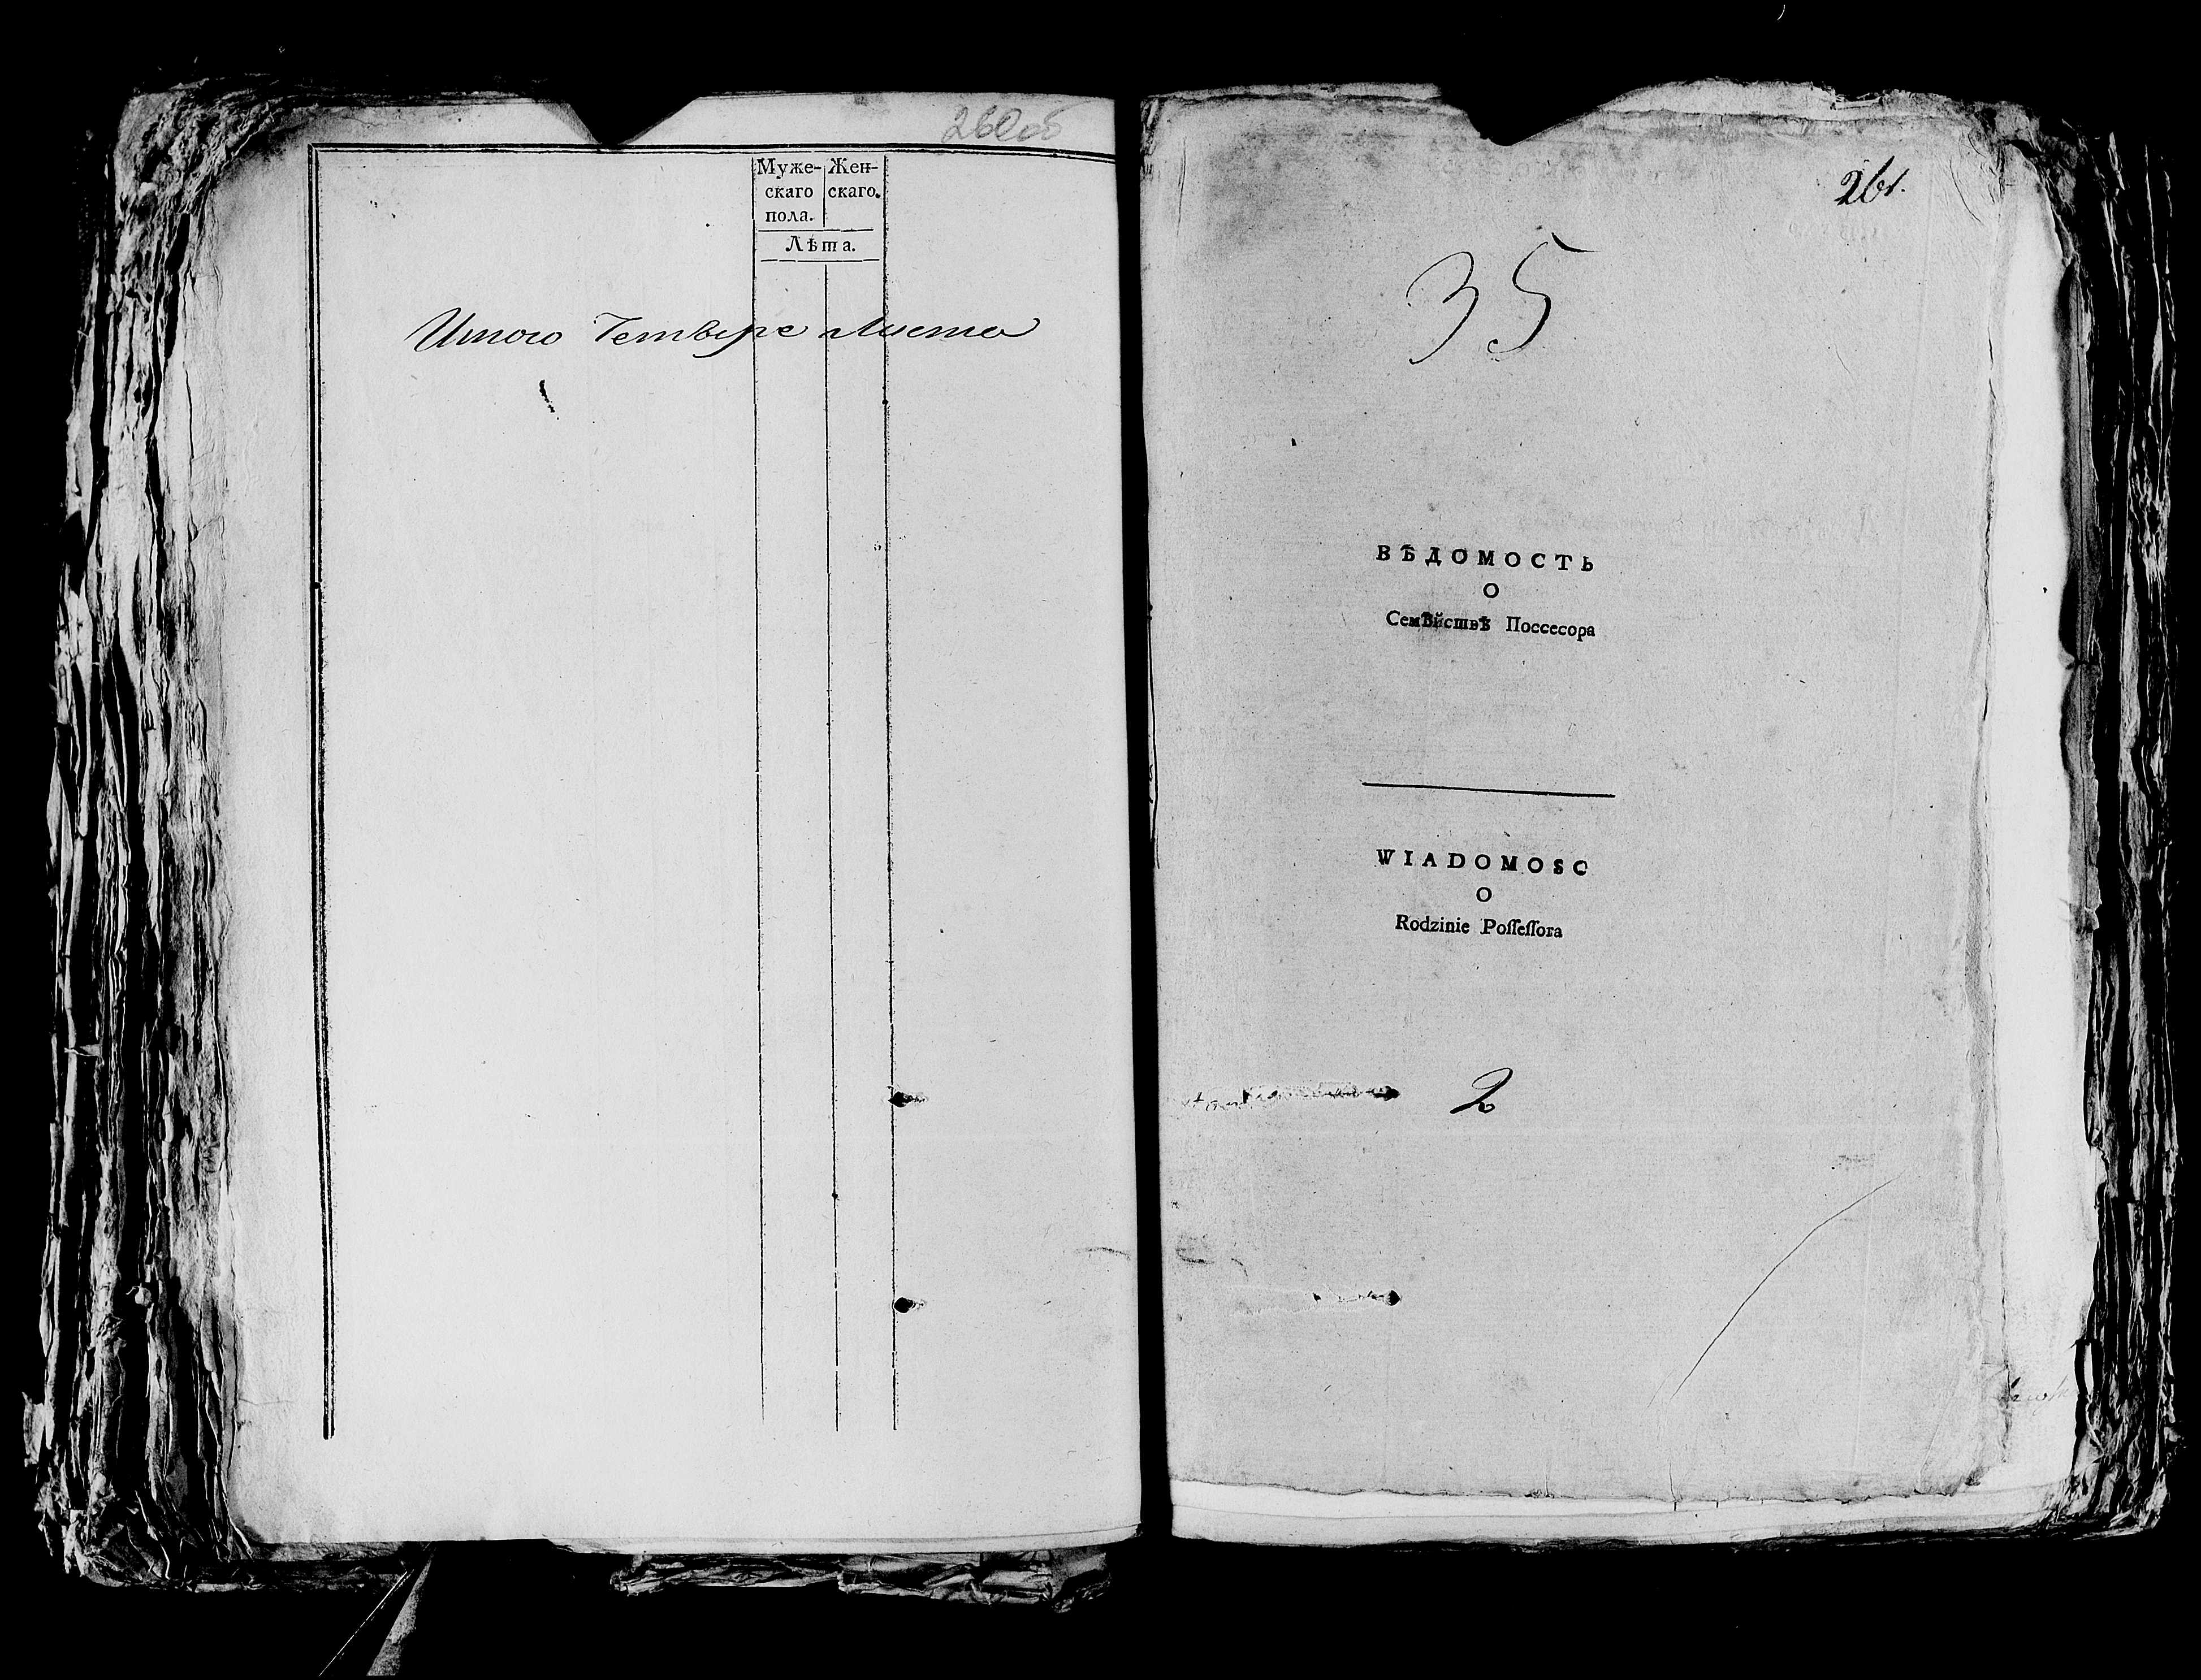 260об
Муже- Жен-
скаго скаго.
пола.
Лѣта.
Итого Четвере Листа
261.
35
ВѢДОМОСТЬ
О
Семѣйствѣ Поссесора
WIADOMOSC
O
Rodzinie Poſſeſſora
2